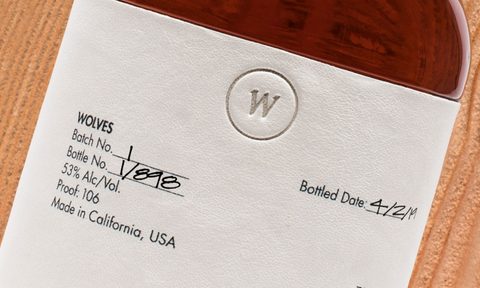 W
WOLVES
Batch No. 1
Bottle No. 1/898
53% Alc/Vol.
Proof: 106
Made in California, USA
Bottled Date: 4/2/19